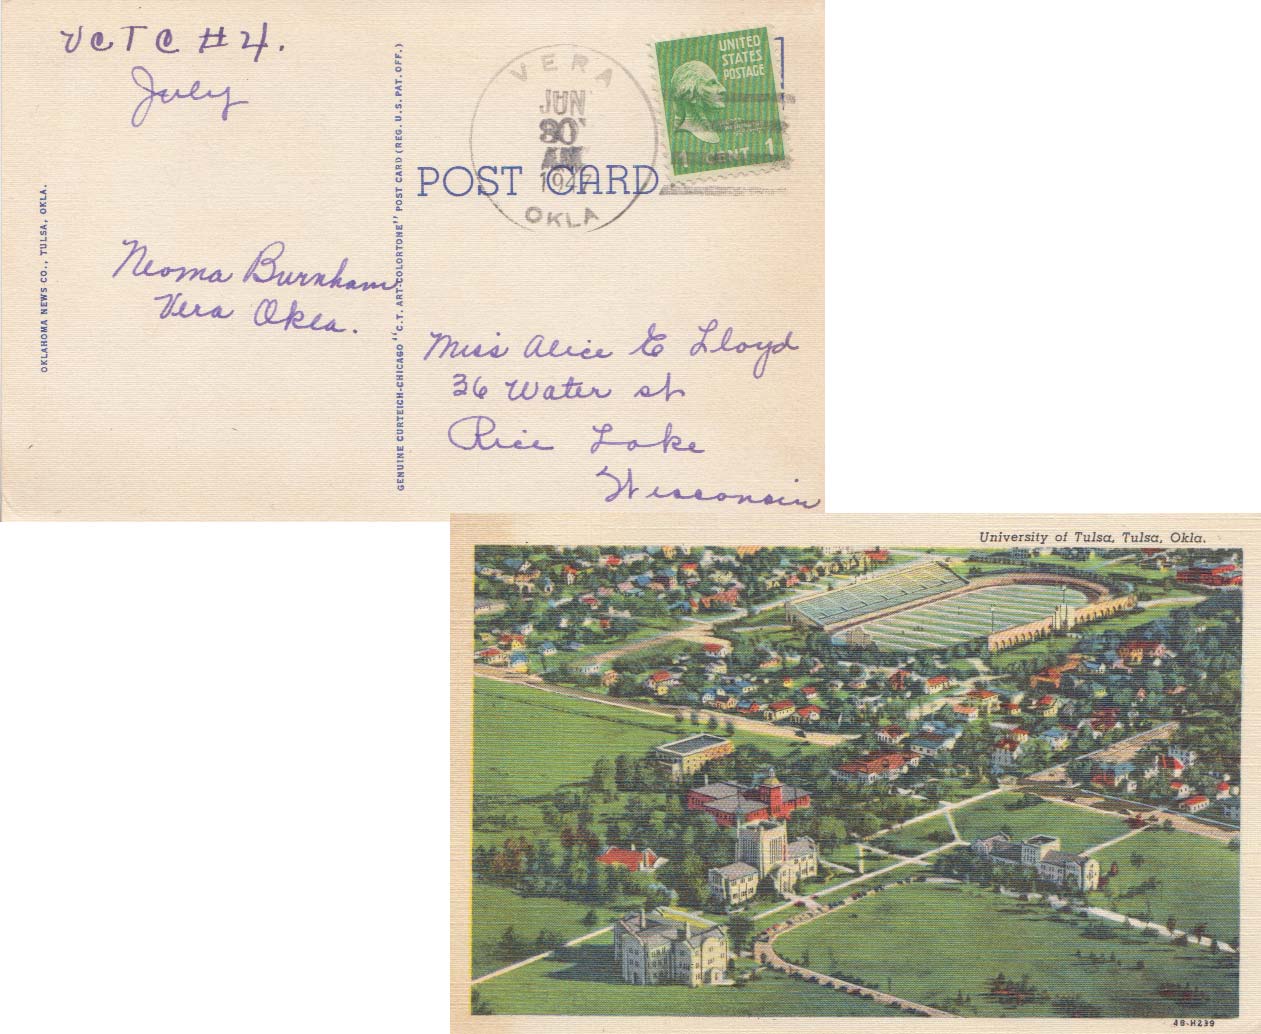 VCTC #4.
July
Neoma Burnham
Vera Okla.
OKLAHOMA NEWS CO., TULSA, OKLA.
GENUINE CURTEICH-CHICAGO "C.T. ART-COLORTONE" POST CARD (REG. U.S. PAT. OFF.)
VERA
JUN
30
AM
1947
OKLA
UNITED
STATES
POSTAGE
1 CENT 1
POST CARD
Miss Alice E Lloyd
36 Water st
Rice Lake
Wisconsin
University of Tulsa, Tulsa, Okla.
4B-H239